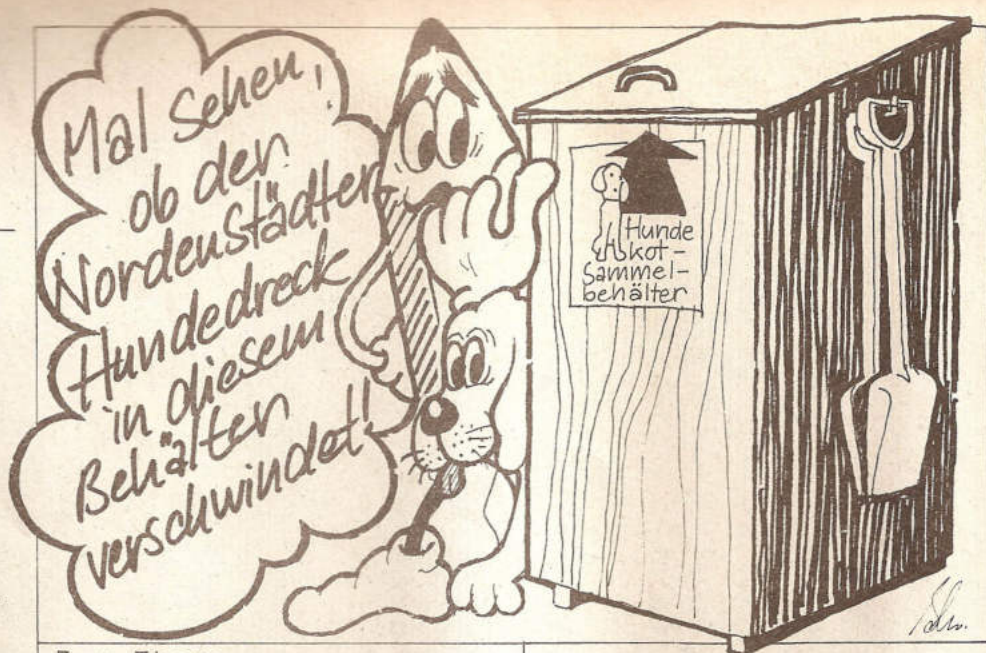 Mal Sehen,
ob der
Nordenstädter
Hundedreck
in diesem
Behälter
verschwindet!
Hunde
kot-
Sammel-
behälter